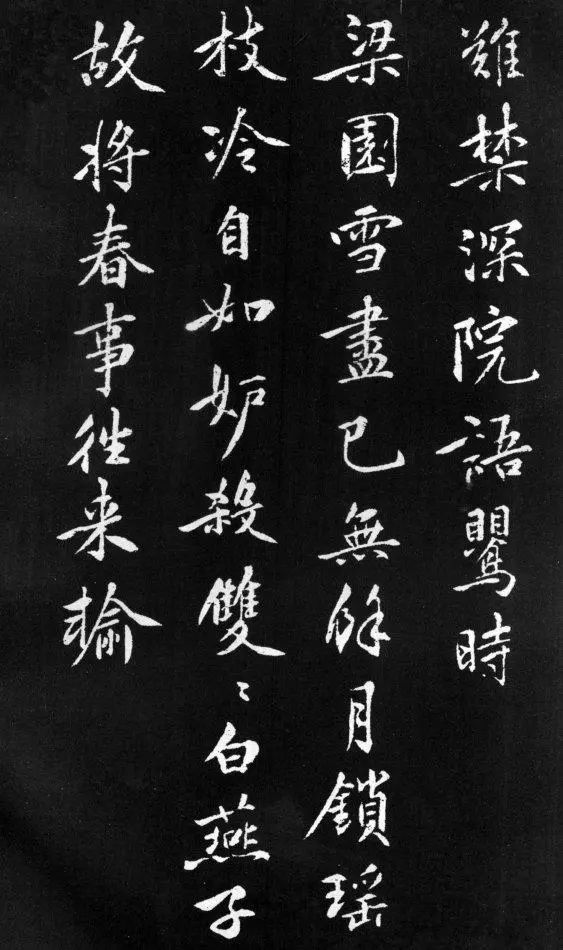 難禁深院語鸎時
梁園雪盡已無餘月鎖瑶
枝冷自如妒殺雙〻白燕子
故將春事往来輸